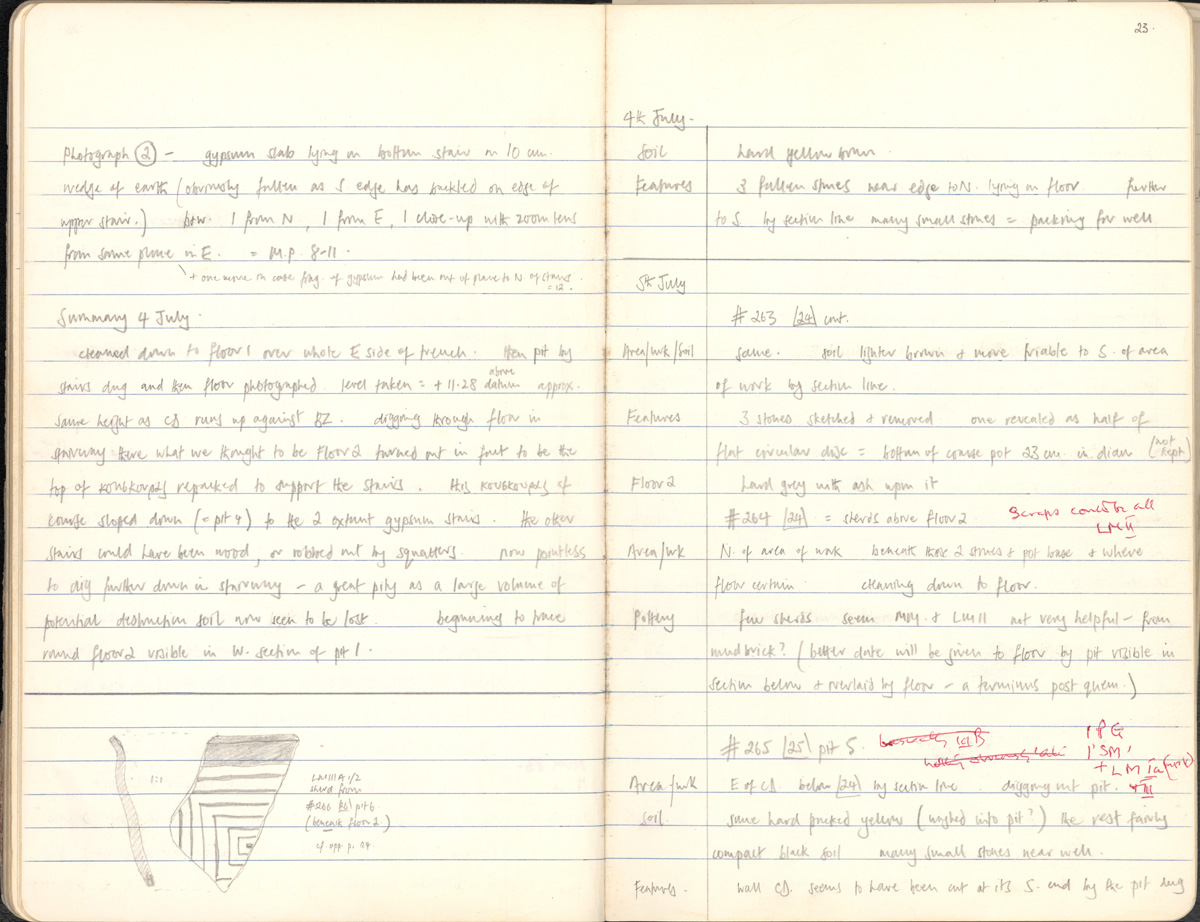 Photograph ② – gypsum slab lying on bottom stair on 10 cm.
wedge of earth (obviously fallen as S edge has buckled on edge of
upper stair.) b+w. 1 from N, 1 from E, 1 close-up with zoom lens
from same place in E. = M.P. 8-11.
+ one more in case frag. of gypsum had been out of place to N of stairs
= 12.
Summary 4 July.
cleaned down to floor 1 over whole E side of trench. then pit by
stairs dug and then floor photographed. level taken = + 11.28 above datum approx.
same height as CD runs up against BZ. digging through floor in
stairway there what we thought to be Floor 2 turned out in fact to be the
top of κουσκουρας repacked to support the stairs. this κουσκουρας of
course sloped down (= pit 4) to the 2 extant gypsum stairs. the other
stairs could have been wood, or robbed out by squatters. now pointless
to dig further down in stairway – a great pity as a large volume of
potential destruction soil now seen to be lost. beginning to trace
round floor 2 visible in W. section of pit 1.
1:1
LMIIIA 1/2
sherd from
#266 pit 6
(beneath floor 2)
cf opp. p. 24
23.
4th July.
Soil hard yellow brown.
Features 3 fallen stones near edge to N. lying on floor. further
to S. by section line many small stones = packing for well
5th July
# 263 |24| cont.
Area/wk/soil same. soil lighter brown & more friable to S. of area
of work by section line.
Features 3 stones sketched & removed one revealed as half of
flat circular disc = bottom of coarse pot 23 cm. in diam (not kept)
Floor 2 hard grey with ash upon it
# 264 |24| = sherds above floor 2 Scraps could be all
LM II
Area/wk N. of area of work beneath those 2 stones & pot base & where
floor certain cleaning down to floor.
Pottery few sherds seem MM. & LMII not very helpful – from
mudbrick? (better date will be given to floor by pit visible in
section below & overlaid by floor – a terminus post quem.)
# 265 |25| pit 5. 1 PG
1 'SM'
+ LM Ia (wk)
+ III
Area/wk E of CD. below |24| by section line. digging out pit.
Soil. some hard packed yellow (washed into pit?) the rest fairly
compact black soil many small stones near well.
Features. wall CD. seems to have been cut at its S. end by the pit dug